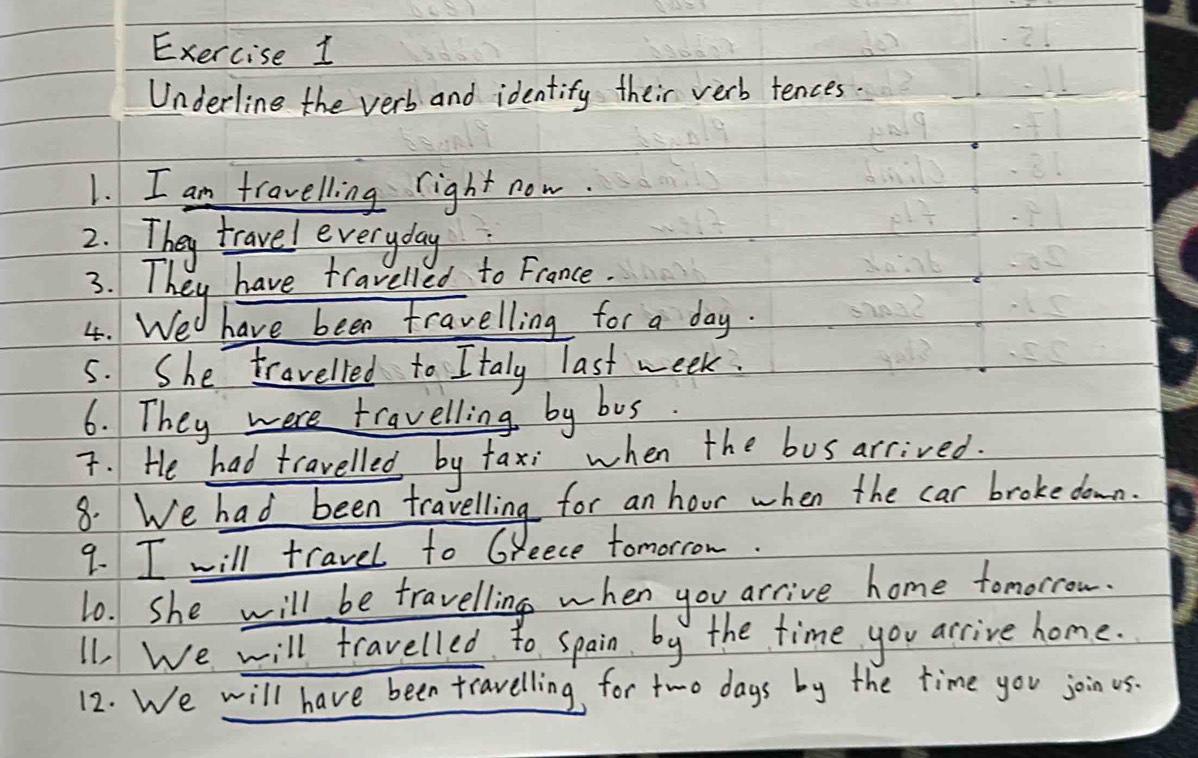 Exercise 1
Underline the verb and identify their verb tences.
1. I am travelling right now.
2. They travel everyday.
3. They have travelled to France.
4. We have been travelling for a day.
5. She travelled to Italy last week.
6. They were travelling by bus.
7. He had travelled by taxi when the bus arrived.
8. We had been travelling for an hour when the car broke down.
9. I will travel to Greece tomorrow.
10. She will be travelling when you arrive home tomorrow.
11. We will travelled to spain by the time you arrive home.
12. We will have been travelling for two days by the time you join us.